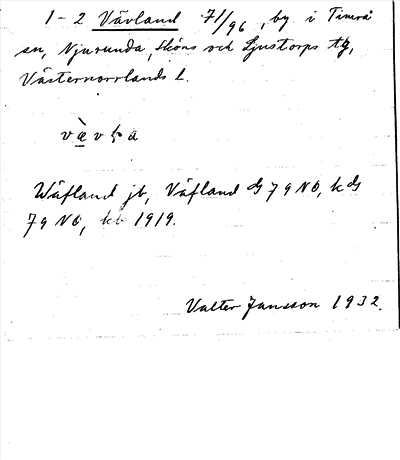 1-2 Vävland 71/96, by i Timrå
sn, Njurunda, Sköns och Ljustorps tg,
Västernorrlands l.
Wäfland jb, Väfland G 79 NO, k G
79 NO, kb 1919.
Valter Jansson 1932.